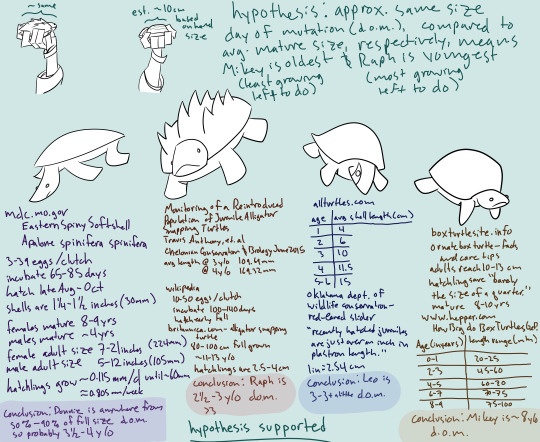 ~ same
est. ~10cm
based
on hand
size
hypothesis: approx. same size
day of mutation (d.o.m.), compared to
avg. mature size, respectively, means
Mikey is oldest & Raph is youngest
(least growing
left to do)
(most growing
left to do)
mdc.mo.gov
Eastern Spiny Softshell
Apalone spinifera spinifera
3-39 eggs/clutch
incubate 65-85 days
hatch late Aug-Oct
shells are 1¼-1½ inches (30mm)
females mature 8-9 yrs
males mature ~4yrs
female adult size 7-21 inches
male adult size 5-12 inches (105mm)
hatchlings grow ~0.115 mm/d until ~60mm
≈0.805 mm/week
Conclusion: Donnie is anywhere from
50%-90% of full size d.o.m.
so probably 3½-4 y/o
Monitoring of a Reintroduced
Population of Juvenile Alligator
Snapping Turtles
Travis Anthony, et al
Chelonian Conservation & Biology June 2015
avg length @ 3 y/o
@ 4 y/o
wikipedia
10-50 eggs/clutch
incubate 100-140 days
hatch early fall
britannica.com - alligator snapping
turtle
80-100 cm full grown
~11-13 y/o
hatchlings are 2.5-4cm
Conclusion: Raph is
2½-3 y/o d.o.m.
>3
allturtles.com
age avg shell length (cm)
1 4
2 6
3 10
4 11.5
5-6 15
Oklahoma dept. of
wildlife conservation -
red-eared slider
"recently hatched juveniles
are just over an inch in
plastron length."
1in=2.54cm
Conclusion: Leo is
3-3+a little d.o.m.
boxturtlesite.info
Ornate box turtle - facts
and care tips
adults reach 10-13 cm
hatchlings are "barely
the size of a quarter."
mature 8-10 yrs
www.hepper.com
How Big do Box Turtles Get?
Age (in years) length range (in mm)
0-1 20-25
2-3 45-60
4-5 60-70
6-7 70-75
8-9 75-100
Conclusion: Mikey is ~8 y/o
d.o.m.
hypothesis supported